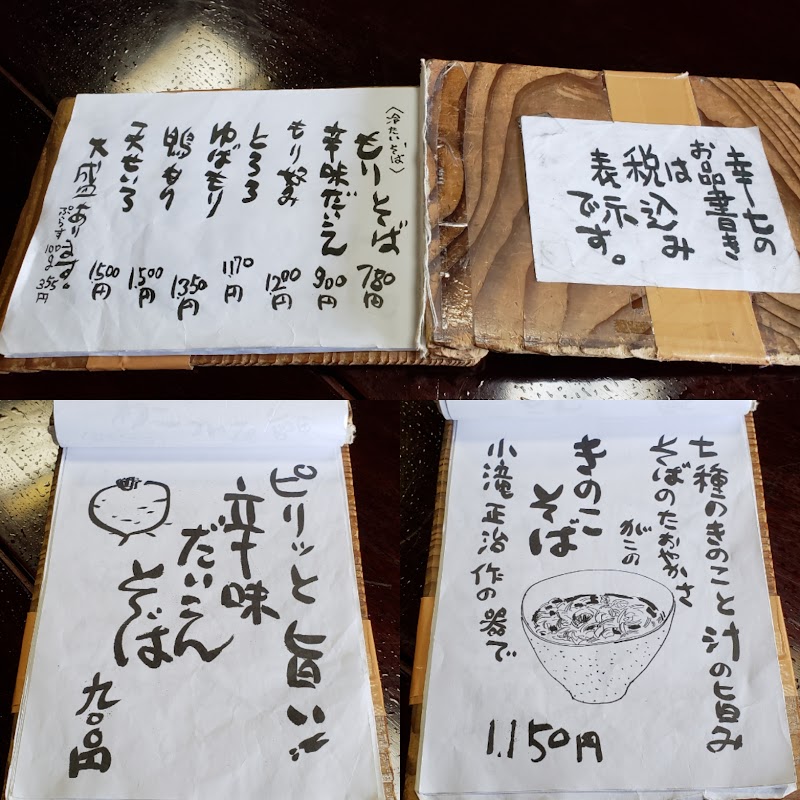 〈冷たいそば〉
もりそば 780円
辛味だいこん 900円
もり好み 1.200円
とろろ
ゆばもり 1.170円
鴨もり 1.350円
天せいろ 1.500円
大盛あります。 1.500円
ぷらす100g 355円
幸七の
お品書き
は
税込み
表示
です。
ピリッと旨い!!
辛味
だいこん
そば
九〇〇円
七種のきのこと汁の旨み
そばのたおやかさ
がこの
きのこ
そば
小滝正治作の器で
1.150円